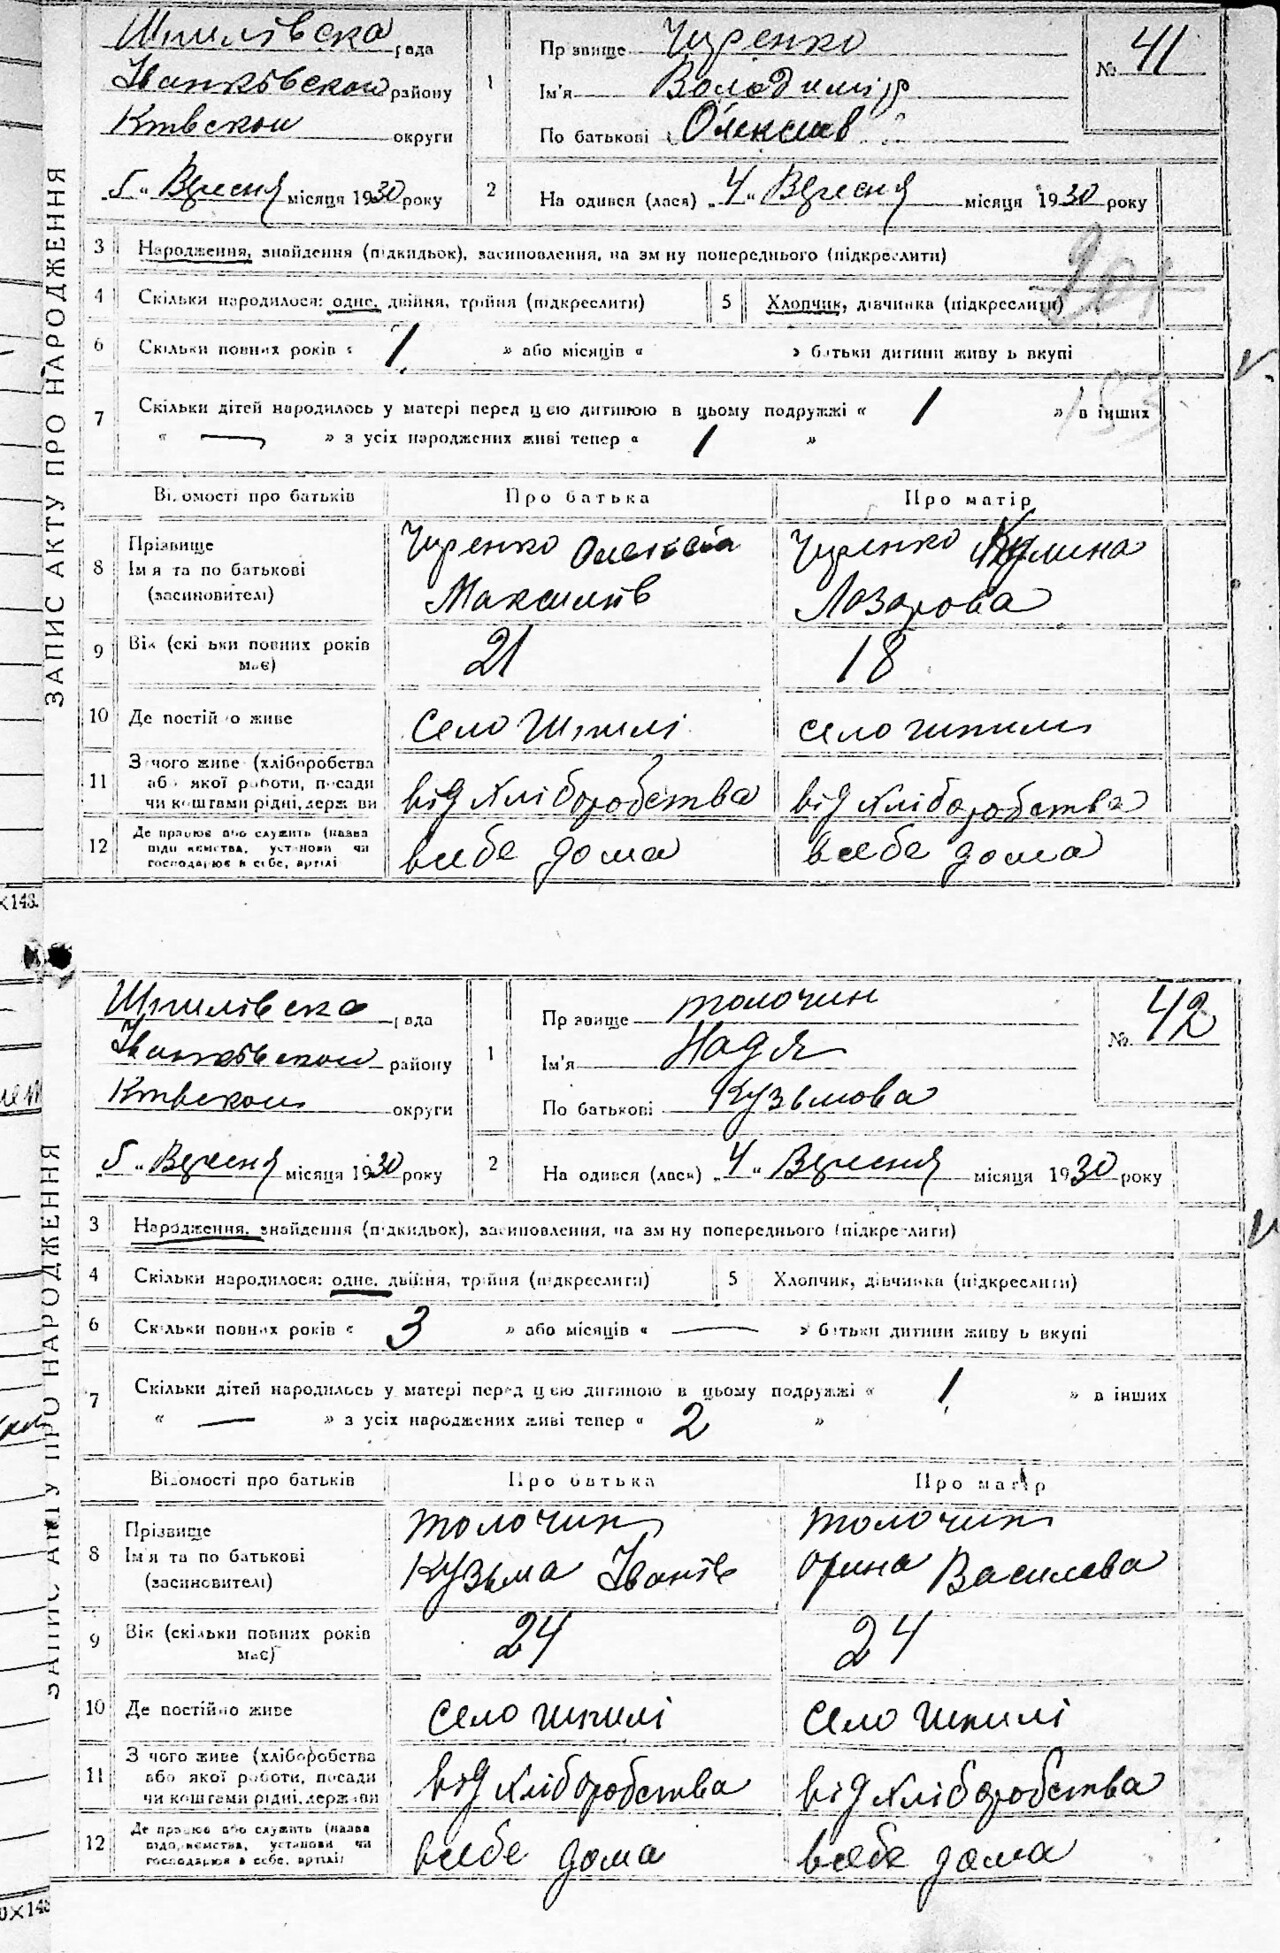 ЗАПИС АКТУ ПРО НАРОДЖЕННЯ
Шпилівска рада
Іванківскои району
Київскои округи
„5“ Вересня місяця 1930 року
1
Прізвище Цуренко
Ім'я Володимір
По батькові Олексіів
№ 41
2 Народився (лася) „4“ Вересня місяця 1930 року
3 Народження, знайдення (підкидьок), засиновлення, на зміну попереднього (підкреслити)
4 Скільки народилося: одне, двійня, трійня (підкреслити) 5 Хлопчик, дівчинка (підкреслити)
6 Скільки повних років « 1 » або місяців « » батьки дитини живуть вкупі
7 Скільки дітей народилось у матері перед цією дитиною в цьому подружжі « 1 » в інших
« — » з усіх народжених живі тепер « 1 »
153
Відомості про батьків Про батька Про матір
8 Прізвище
Ім'я та по батькові
(засиновителі)
Цуренко Олексій
Максимів
Цуренко
Лазарова
9 Вік (скільки повних років має) 21 18
10 Де постійно живе село Шпилі село шпилі
11 З чого живе (хліборобства
або якої роботи, посади
чи коштами рідні, держави
від хліборобства від хліборобства
12 Де працює або служить (назва
підприємства, установи чи
господарює в себе, артілі
всебе дома всебе дома
×148.
ЗАПИС АКТУ ПРО НАРОДЖЕННЯ
Шпилівска рада
Іванківскои району
Київскои округи
„5“ Вересня місяця 1930 року
1
Прізвище толочин
Ім'я Надя
По батькові Кузьмова
№ 42
2 Народився (лася) „4“ Вересня місяця 1930 року
3 Народження, знайдення (підкидьок), засиновлення, на зміну попереднього (підкреслити)
4 Скільки народилося: одне, двійня, трійня (підкреслити) 5 Хлопчик, дівчинка (підкреслити)
6 Скільки повних років « 3 » або місяців « — » батьки дитини живуть вкупі
7 Скільки дітей народилось у матері перед цією дитиною в цьому подружжі « 1 » в інших
« — » з усіх народжених живі тепер « 2 »
Відомості про батьків Про батька Про матір
8 Прізвище
Ім'я та по батькові
(засиновителі)
толочин
Кузьма Іванів
толочин
орина Василева
9 Вік (скільки повних років має) 24 24
10 Де постійно живе село шпилі село шпилі
11 З чого живе (хліборобства
або якої роботи, посади
чи коштами рідні, держави
від хліборобства від хліборобства
12 Де працює або служить (назва
підприємства, установи чи
господарює в себе, артілі)
всебе дома всебе дома
×148